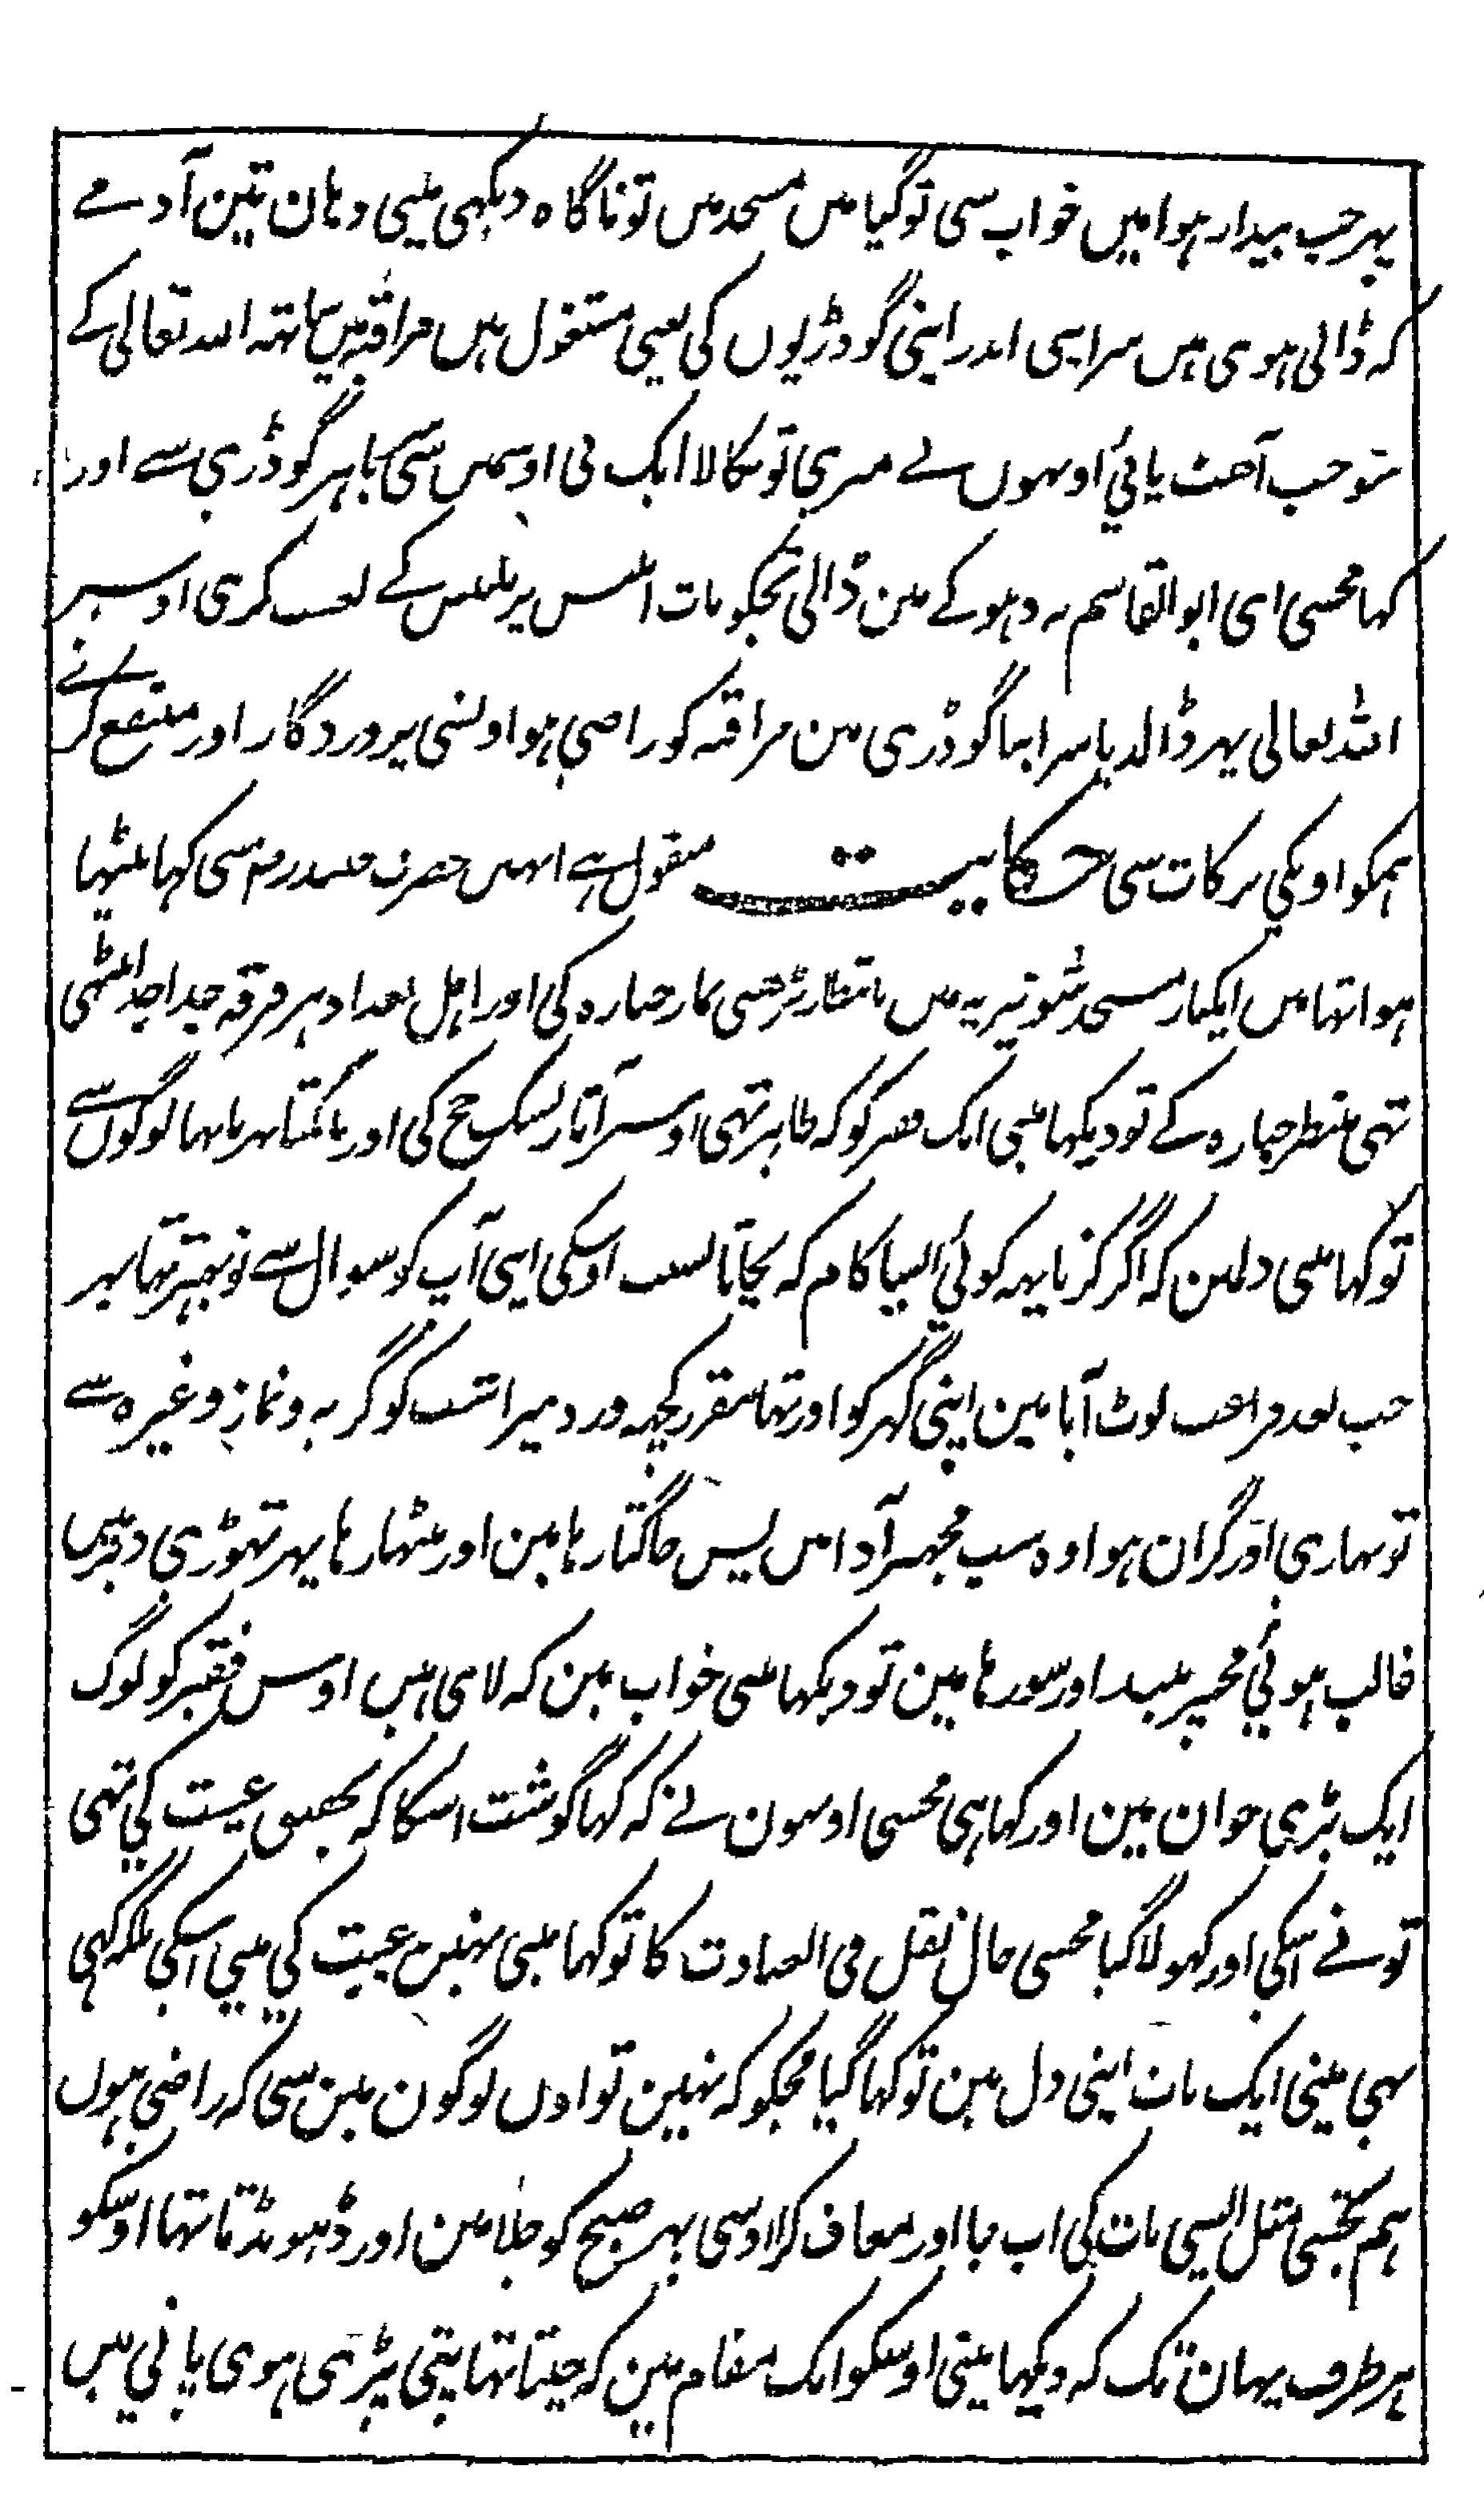 پہر جب بیدار ہوا میں خواب سی تو گیا میں مسجد میں تو ناگاہ دیکہی مینی وہان تین آدمے
کہ ڈالی ہوی ہیں سر اپی اندر اپنی گودڑیوں کی یعنی مشغول ہیں مراقبہ میں ساتہہ اللہ تعالی کے
تو جب آہٹ پائی اونہوں نے میری تو نکالا ایک نی اونمیں سی باہر گوڈری سے اور
کہا مجہسی ای ابو القاسم نہ دہوکے مین ڈالی تجکو بات ابلیس پر تلبیس کے لعنت کری اوسپر
اللہ تعالی پہر ڈالدیا سر اپنا گوڈری مین مراقبہ کو راضی ہو اونسی پروردگار اور منتفع کرے
ہمکو اونکی برکات سی حکایت منقول ہے انہیں حضرت جنید رم سی کہا بیٹہا
ہوا تہا میں ایکبار مسجد شونیزیہ میں بانتظار پڑہنی نماز جنازہ کی اور اہل بغداد ہر فرقہ جدا جدا بیٹہی
تہی منتظر جنازہ کے تو دیکہا مینی ایک فقیر کو کہ ظاہر تہی اوسپر آثار نسک حج کی اور مانگتا پہرتا تہا لوگوں سے
تو کہا مینی دلمین کہ اگر کرتا یہہ کوئی ایسا کام کہ بچاتا بسبب اوسکی اپی آپ کو سوال سے تو بہتر تہا پہر
جب بعد فراغت لوٹ آیا مین اپنی گہر کو اور تہا مقرر کچہہ ورد میرا شب کو گریہ و نماز وغیرہ سے
تو بہاری اور گران ہوا وہ سب مجہپر آدا میں پس جاگتا رہا مین اور بیٹہا رہا پہر تہوڑی دیر میں
غالب ہوئی مجہپر نیند اور سو رہا مین تو دیکہا مینی خواب مین کہ لای ہیں اوس فقیر کو لوگ
ایک بڑی خوان مین اور کہا ہی مجہسی اونہون نے کہ کہا گوشت اسکا کہ غیبت کی تہی
تونے اسکی اور کہولا گیا مجہسی حال نقل فی العبادت کا تو کہا مینی نہیں غیبت کی مینی اسکی بلکہ کہی
تہی مینی ایک بات اپنی دل مین تو کہا گیا مجکو کہ نہین تو اون لوگون مین سی کہ راضی ہوں
ہم تجہسی مثل ایسی بات کی اب جا اور معاف کرا اوسی پہر صبح کو چلا مین اور ڈہونڈتا تہا اوسکو
ہر طرف یہان تک کہ دیکہا مینی اوسکو ایک مقام مین کہ چنتا تہا پتی پڑی ہوی پانی میں